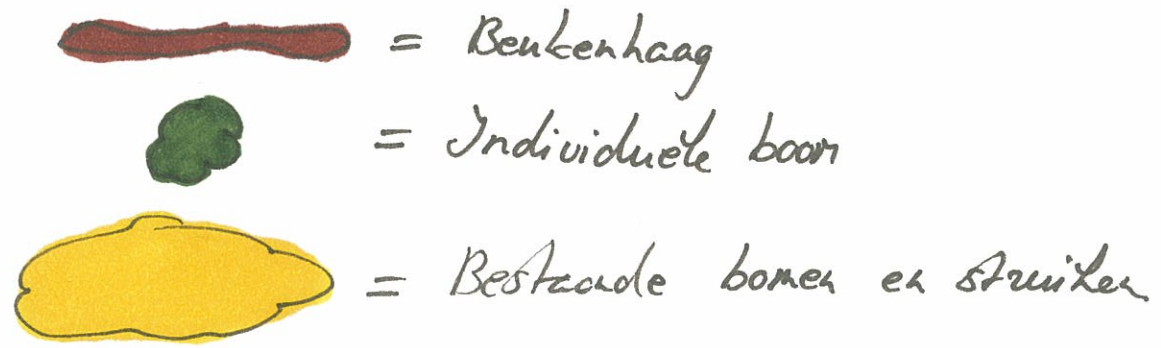 = Beukenhaag
= Individuele boom
= Bestaande bomen en struiken